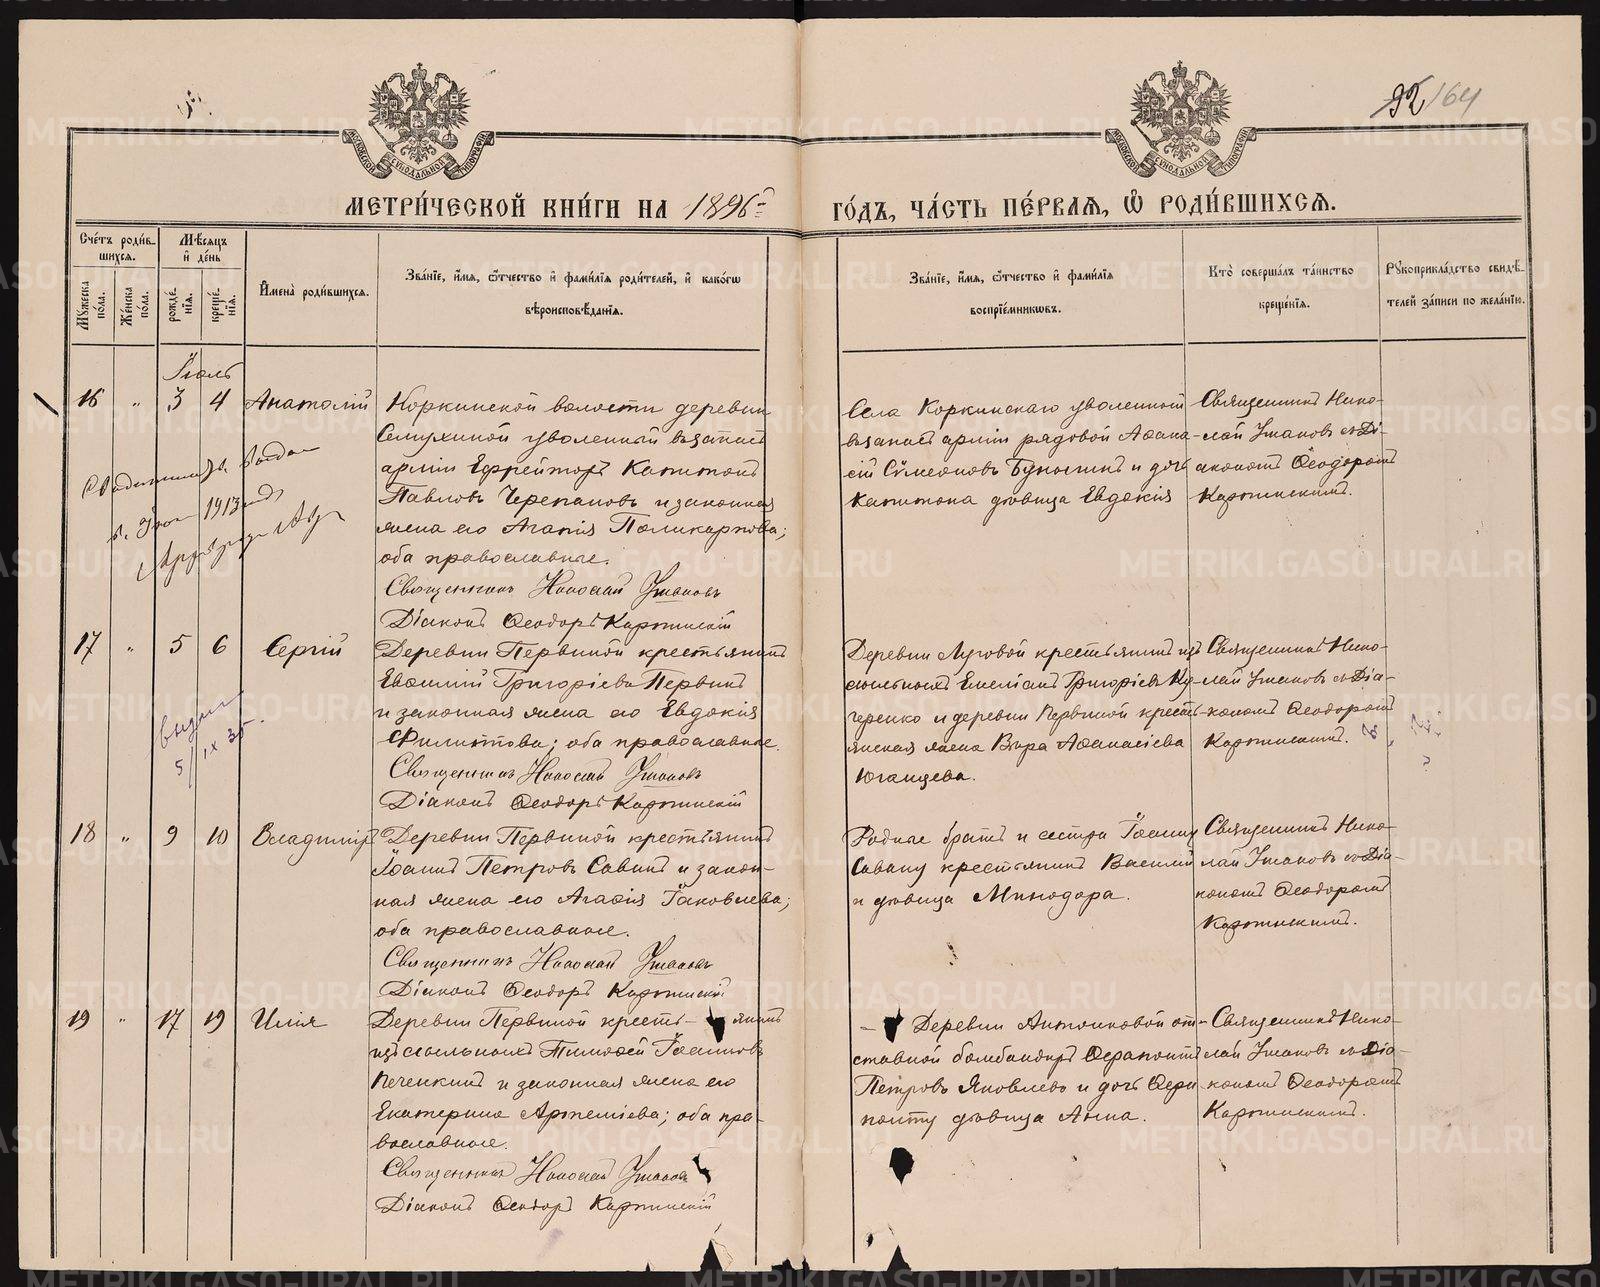 92 164
МОСКОВСКОЙ СѴНОДАЛЬНОЙ ТИПОГРАФІИ
МОСКОВСКОЙ СѴНОДАЛЬНОЙ ТИПОГРАФІИ
МЕТРИ́ЧЕСКОЙ КНИ́ГИ НА 1896 ГО́ДЪ, ЧА́СТЬ ПЕ́РВАѦ, Ѡ РОДИ́ВШИХСѦ.
Сче́тъ роди́в-
шихсѧ.
Мꙋжеска по́ла.
Же́нска по́ла.
Мѣ́сѧцъ и҆ де́нь
рожде́нїѧ.
креще́нїѧ.
И҆мена̀ роди́вшихсѧ.
Зва́нїе, и҆́мѧ, ѻ҆́тчество и҆ фами́лїѧ роди́телей, и҆ како́гѡ
вѣроисповѣ́данїѧ.
Зва́нїе, и҆́мѧ, ѻ҆́тчество и҆ фами́лїѧ
воспрїе́мникѡвъ.
Кто̀ соверша́лъ та́инство
креще́нїѧ.
Рꙋкоприкла́дство свидѣ́-
телей за́писи по жела́нїю.
Іюль
16 " 3 4 Анатолій
Коркинской волости деревни
Семухиной уволенный въ запасъ
арміи Ефрейторъ Капитонъ
Павловъ Черепановъ и законная
жена его Агапія Поликарпова;
оба православные.
Священникъ Николай Ушаковъ
Діаконъ Ѳеодоръ Карпинскій
Села Коркинскаго уволенной
въ запасъ арміи рядовой Аѳана-
сій Сѵмеоновъ и дочь
Капитона дѣвица Евдокія
Священникъ Нико-
лай Ушаковъ съ Ді-
акономъ Ѳеодоромъ
Карпинскимъ.
1913
17 " 5 6 Сергій
Деревни Первиной крестьянинъ
Евѳимій Григорьевъ Первинъ
и законная жена его Евдокія
Филиппова; оба православные.
Священникъ Николай Ушаковъ
Діаконъ Ѳеодоръ Карпинскій
Деревни Луговой крестьянинъ изъ
ссыльныхъ Емеліанъ Григорьевъ Ку-
черенко и деревни Первиной кресть-
янская жена Вѣра Аѳанасіева
Юганцева.
Священникъ Нико-
лай Ушаковъ съ Діа-
кономъ Ѳеодоромъ
Карпинскимъ.
выдан
5/IX 35.
18 " 9 10 Владиміръ
Деревни Первиной крестьянинъ
Іоаннъ Петровъ Савинъ и закон-
ная жена его Агаѳія Іаковлева;
оба православные.
Священникъ Николай Ушаковъ
Діаконъ Ѳеодоръ Карпинскій
Родные братъ и сестра Іоанну
Савину крестьянинъ Василій
и дѣвица Минодора.
Священникъ Нико-
лай Ушаковъ съ Діа-
кономъ Ѳеодоромъ
Карпинскимъ.
19 " 17 19 Илія
Деревни Первиной кресть- янинъ
изъ ссыльныхъ Тимоѳей Іоанновъ
Печенкинъ и законная жена его
Екатерина Артеміева; оба пра-
вославные.
Священникъ Николай Ушаковъ
Діаконъ Ѳеодоръ Карпинскій
Деревни Антоновой от-
ставной бомбандиръ Ѳерапонтъ
Петровъ Яковлевъ и дочь Ѳера-
понту дѣвица Анна.
Священникъ Нико-
лай Ушаковъ съ Діа-
кономъ Ѳеодоромъ
Карпинскимъ.
METRIKI.GASO-URAL.RU